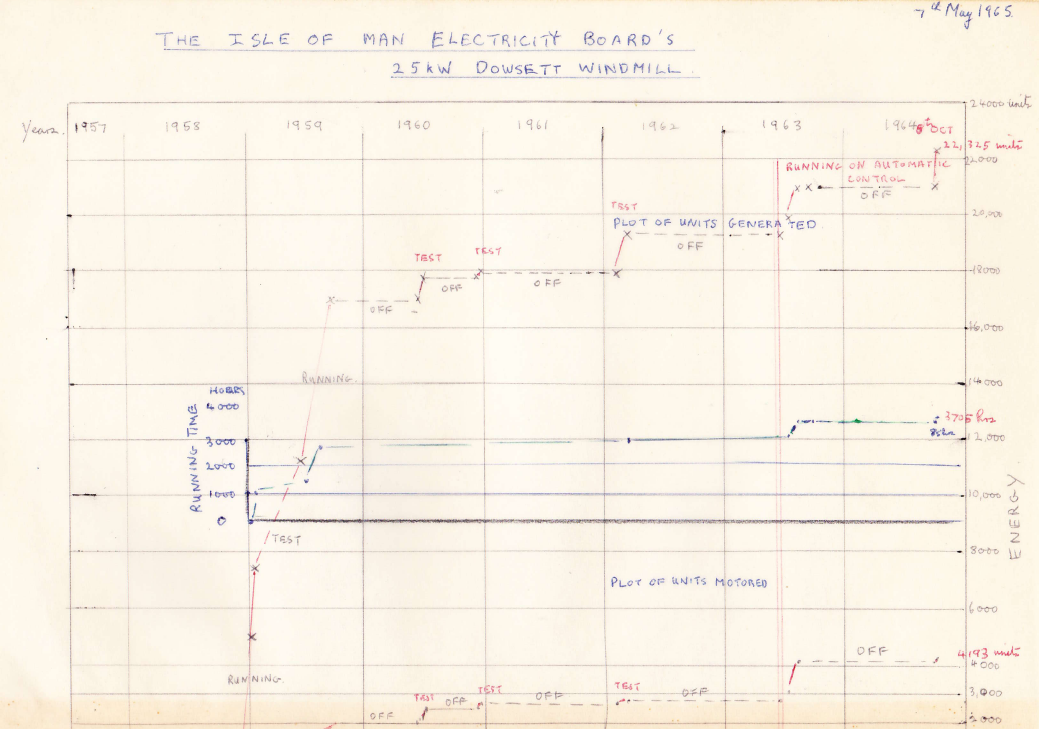 7th May 1965.
THE ISLE OF MAN ELECTRICITY BOARD'S
25kW DOWSETT WINDMILL.
24000 units
Years. 1957 1958 1959 1960 1961 1962 1963 1964 8th OCT
22,325 units
22,000
RUNNING ON AUTOMATIC
CONTROL
OFF
TEST
20,000
PLOT OF UNITS GENERATED
OFF
TEST
TEST
18000
OFF
OFF
OFF
16,000
RUNNING.
14000
HOURS
4000
3705 hrs
3000
12,000
2000
RUNNING TIME
1000
10,000
0
ENERGY
TEST
8000
PLOT OF UNITS MOTORED
6000
OFF
4193 units
4000
RUNNING.
TEST
OFF
TEST
OFF
TEST
OFF
3,000
OFF
2000